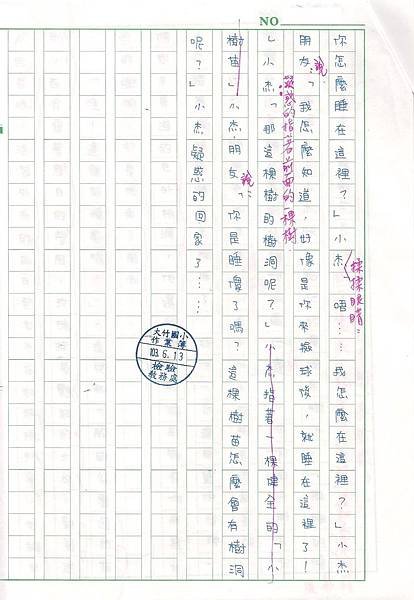 NO
你怎麼睡在這裡？」小杰唔……我怎麼在這裡？」小杰
揉揉眼睛：
朋友「我怎麼知道，好像是你來撿球後，就睡在這裡了！
說：
」小杰「那這棵樹的樹洞呢？」小杰指著一棵健全的「小
疑惑的指著前面的一棵樹：
樹苗」小杰朋友：「你是睡傻了嗎？這棵樹苗怎麼會有樹洞
說
呢？」小杰疑惑的回家了……
大竹國小
作業簿
103.6.13
檢驗
教務處